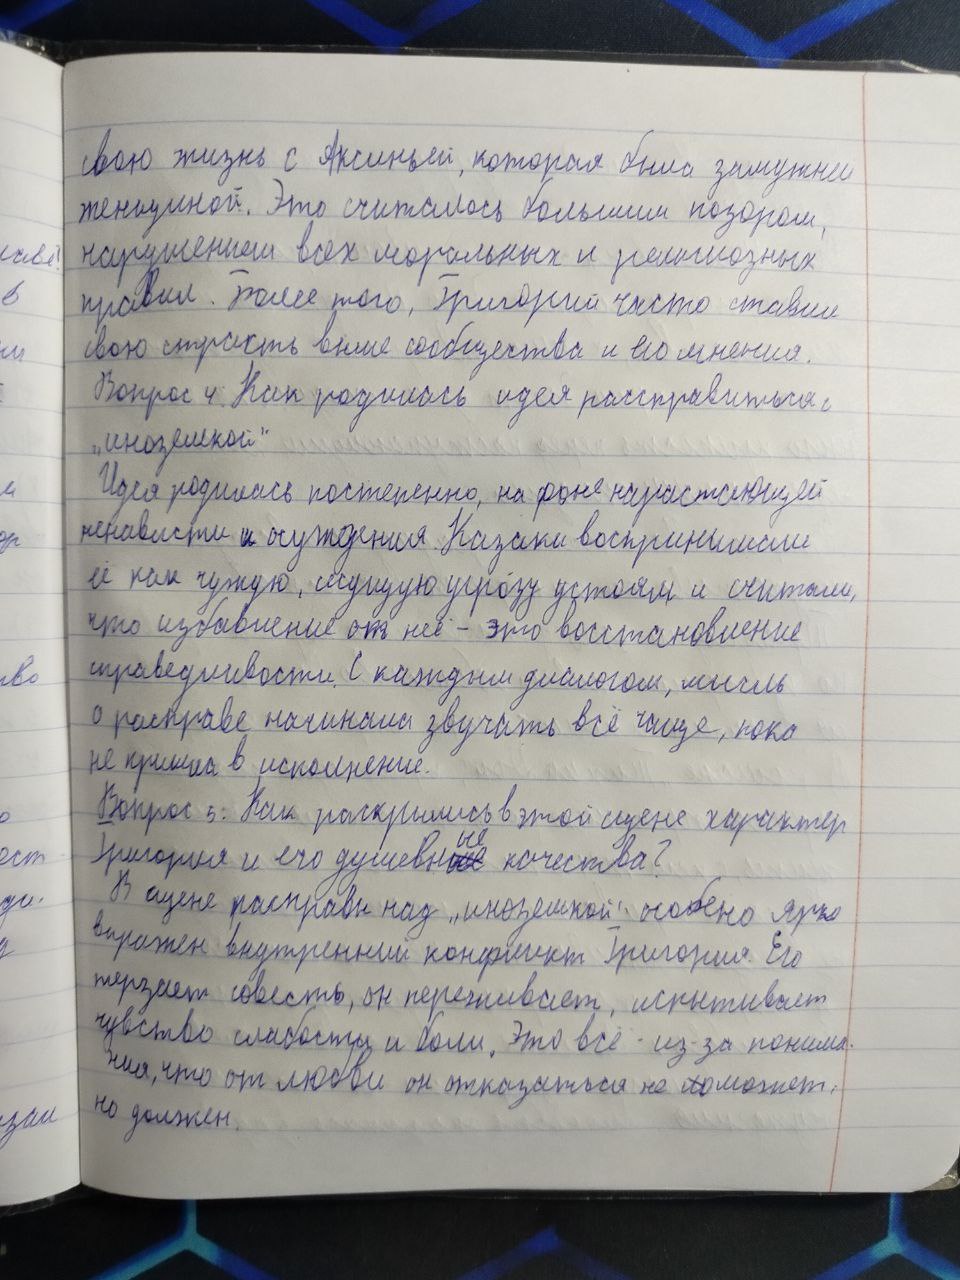 свою жизнь с Аксиньей, которая была замужней
женщиной. Это считалось большим позором,
нарушением всех моральных и религиозных
правил. Более того, Григорий часто ставил
свою страсть выше сообщества и его мнения.
Вопрос 4. Как родилась идея расправиться с
„иноземкой"
Идея родилась постепенно, на фоне нарастающей
ненависти и осуждения. Казаки воспринимали
её как чужую, несущую угрозу устоям и считали,
что избавление от неё - это восстановление
справедливости. С каждым диалогом, мысль
о расправе начинала звучать всё чаще, пока
не пришла в исполнение.
Вопрос 5: Как раскрылись в этой сцене характер
Григория и его душевные качества?
В сцене расправы над „иноземкой" особено ярко
выражен внутренний конфликт Григория. Его
терзает совесть, он переживает, испытивает
чувство слабости и боли. Это всё - из-за понима-
ния, что от любви он отказаться не может,
но должен.
казаки